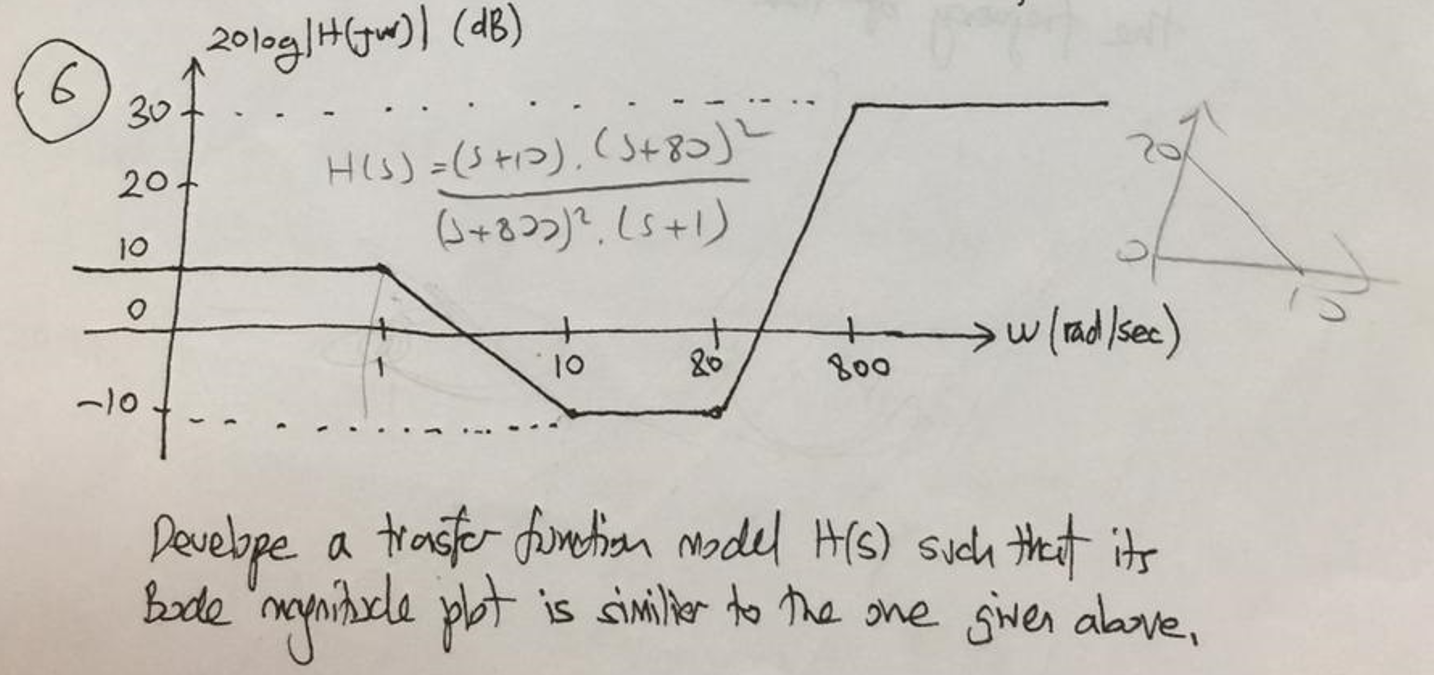 6
20log|H(jw)| (dB)
30
20
10
0
-10
H(s) = (s+10).(s+80)²
(s+800)².(s+1)
20
0
10
1
10
80
800
w (rad/sec)
Develope a trasfer function model H(s) such that its
Bode magnitude plot is similier to the one given above.